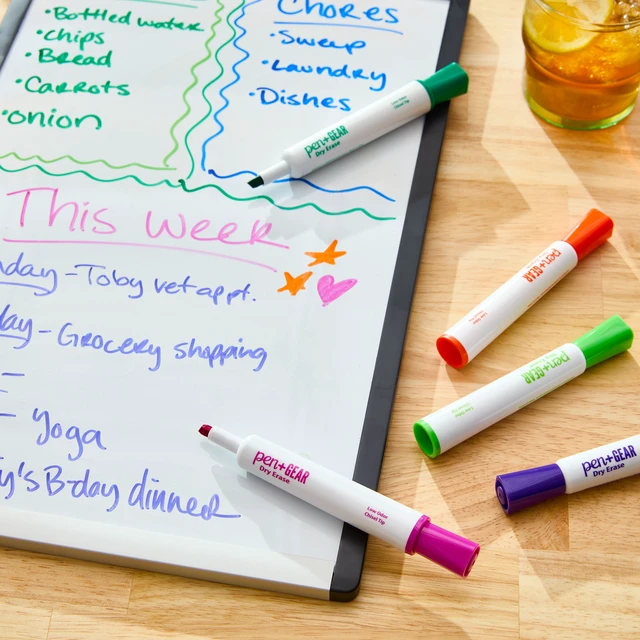 •Bottled water
•chips
•Bread
•Carrots
•onion
Chores
•Sweep
•Laundry
•Dishes
This week
-Toby vet appt.
-Grocery shopping
- yoga
B-day dinner
pen+GEAR
Dry Erase
pen+GEAR
pen+GEAR
pen+GEAR
Dry Erase
pen+GEAR
Dry Erase
Low Odor
Chisel Tip